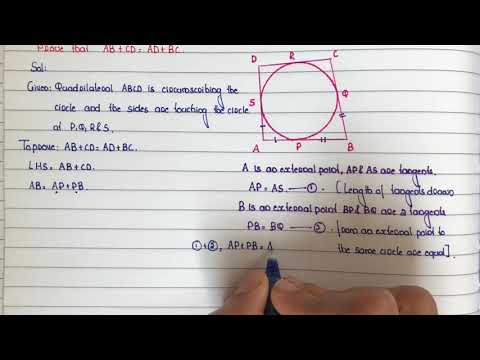 Prove that AB+CD = AD+BC.
Sol:
Given: Quadrilateral ABCD is circumscribing the
circle and the sides are touching the circle
at P, Q, R & S.
To prove: AB+CD = AD+BC.
LHS = AB+CD.
AB = AP+PB.
D R C
S Q
A P B
A is an external point, AP & AS are tangents.
AP = AS. —— ①. [Length of tangents drawn
B is an external point BP & BQ are 2 tangents
PB = BQ —— ②. from an external point to
the same circle are equal].
①+②, AP+PB = A